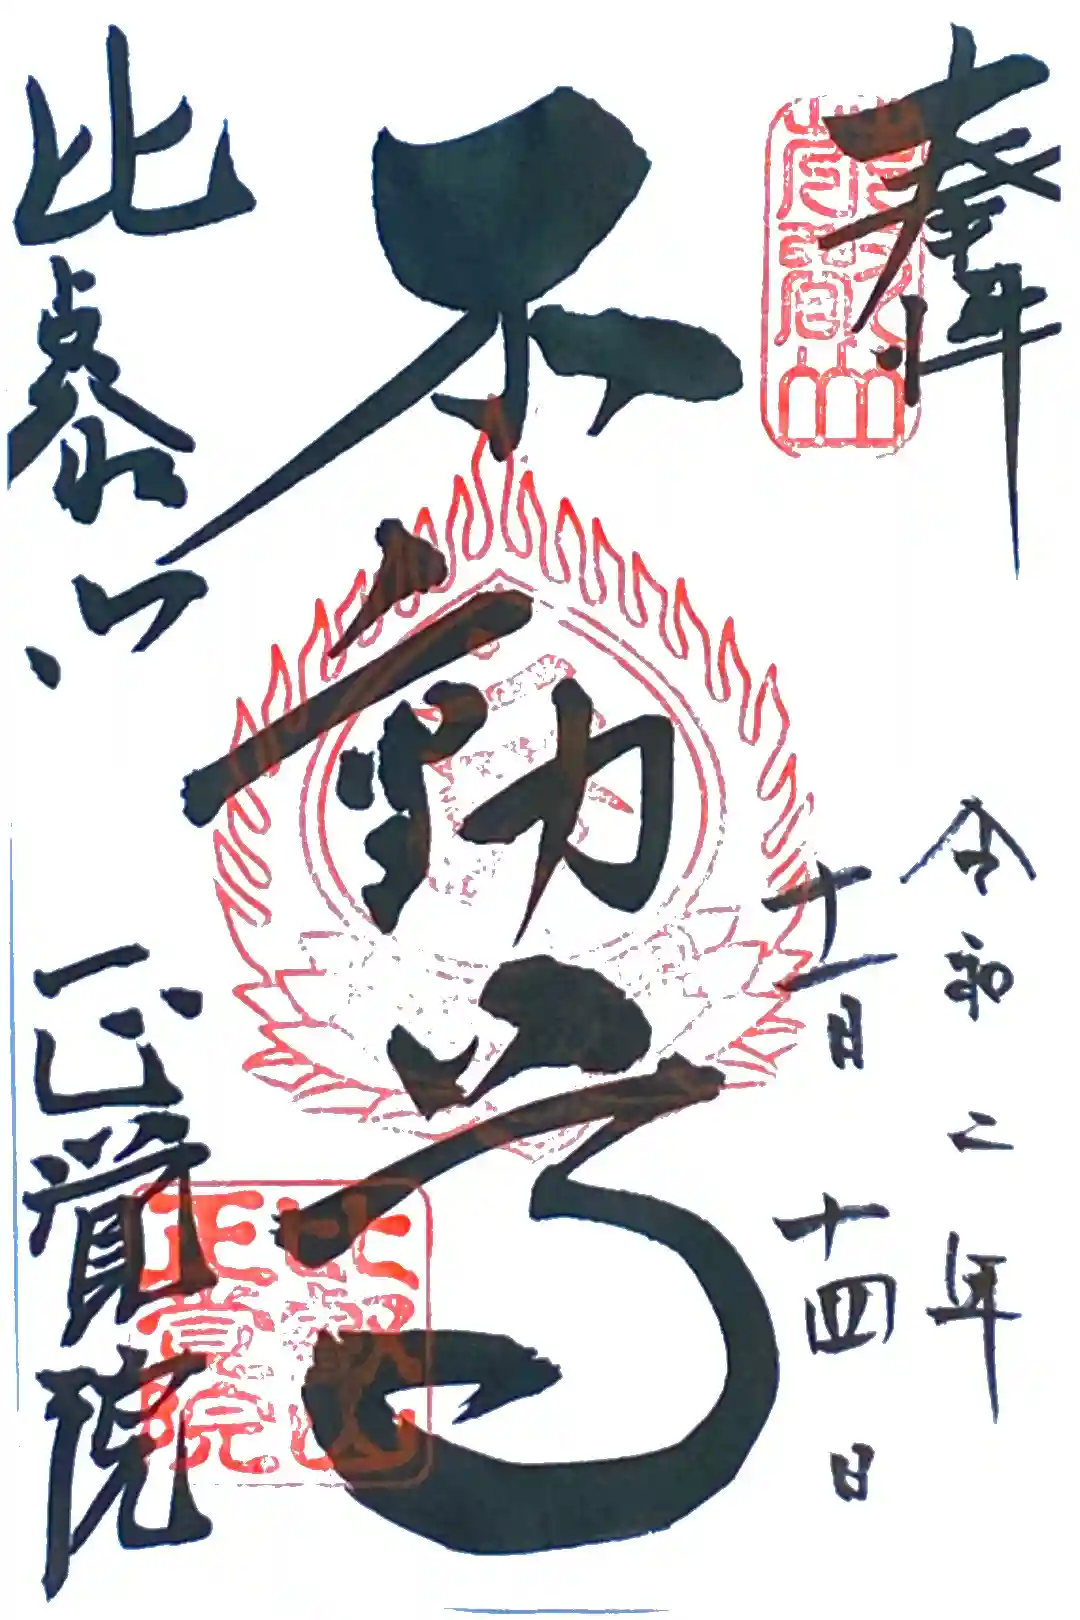 奉拝
令和二年
十一月十四日
不動尊
比叡山
正覚院
比叡山
正覚院